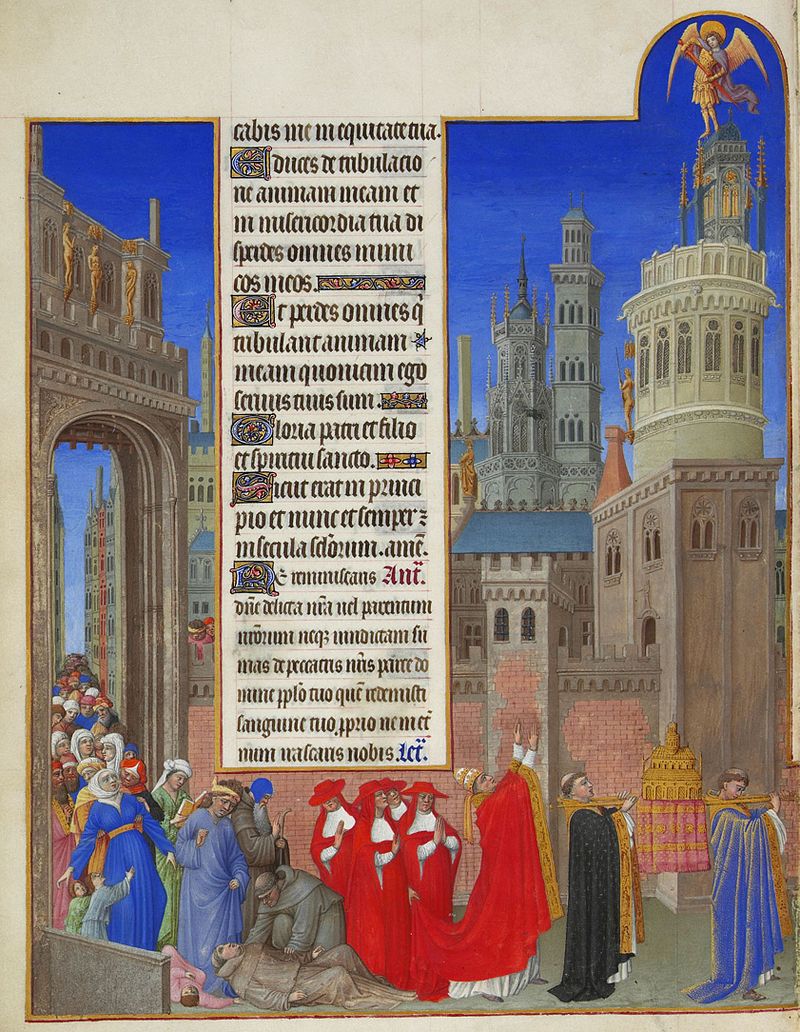 cabis me in equitate tua.
Educes de tribulacio
ne animam meam et
in misericordia tua di
sperdes omnes inimi
cos meos.
Et perdes omnes qͥ
tribulant animam
meam quoniam ego
servus tuus sum.
Gloria patri et filio
et spiritui sancto.
Sicut erat in princi
pio et nunc et semper ⁊
in secula scl̓orum. amē.
Ne reminiscaris Añ.
dñe delicta nr̃a vel parentum
nr̃orum neqꝫ vindictam su
mas de peccatis nr̃is parce do
mine pp̱lo tuo quē redemisti
sanguine tuo ꝓprio ne in et̃
num irascaris nobis. Let̃.